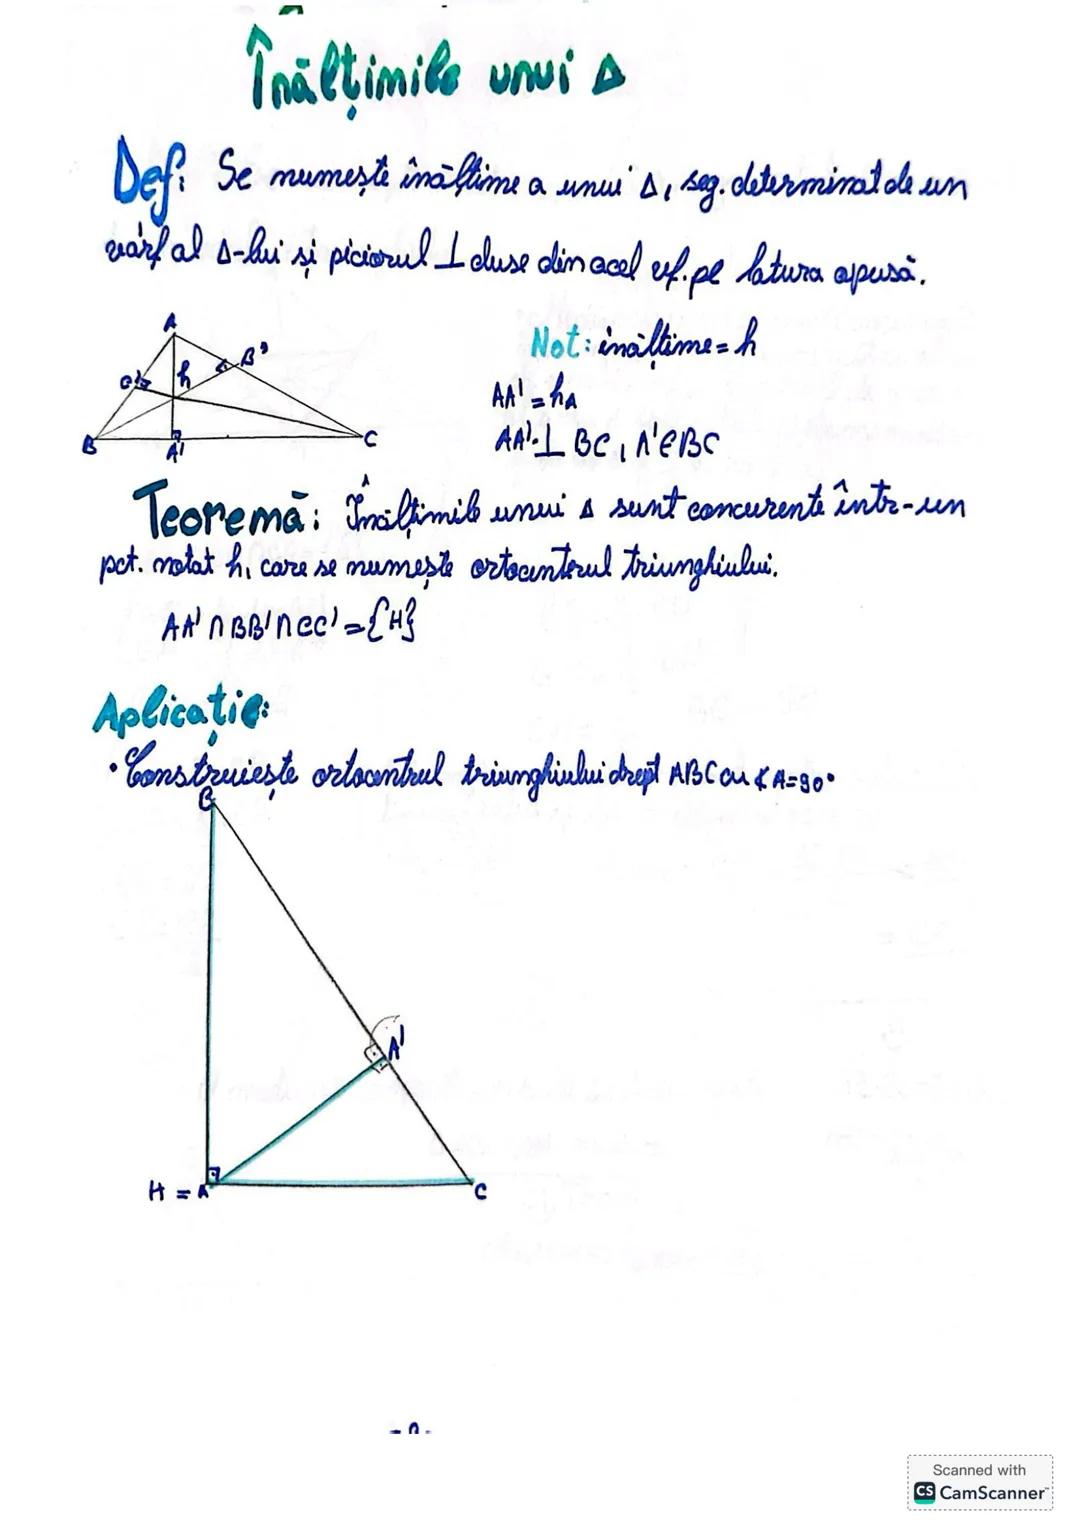 Înălțimile unui Δ
Def: Se numește înălțime a unui Δ, seg. determinat de un
vârf al Δ-lui și piciorul ⊥ duse din acel vf. pe latura opusă.
A
B'
C'
h
B
A'
C
Not: înălțime = h
AA' = hA
AA' ⊥ BC, A' ∈ BC
Teoremă: Înălțimile unui Δ sunt concurente într-un
pct. notat h, care se numește ortocentrul triunghiului.
AA' ∩ BB' ∩ CC' = {H}
Aplicație:
• Construiește ortocentrul triunghiului drept ABC cu ∢A=90°
B
A'
H = A
C
Scanned with
CS CamScanner